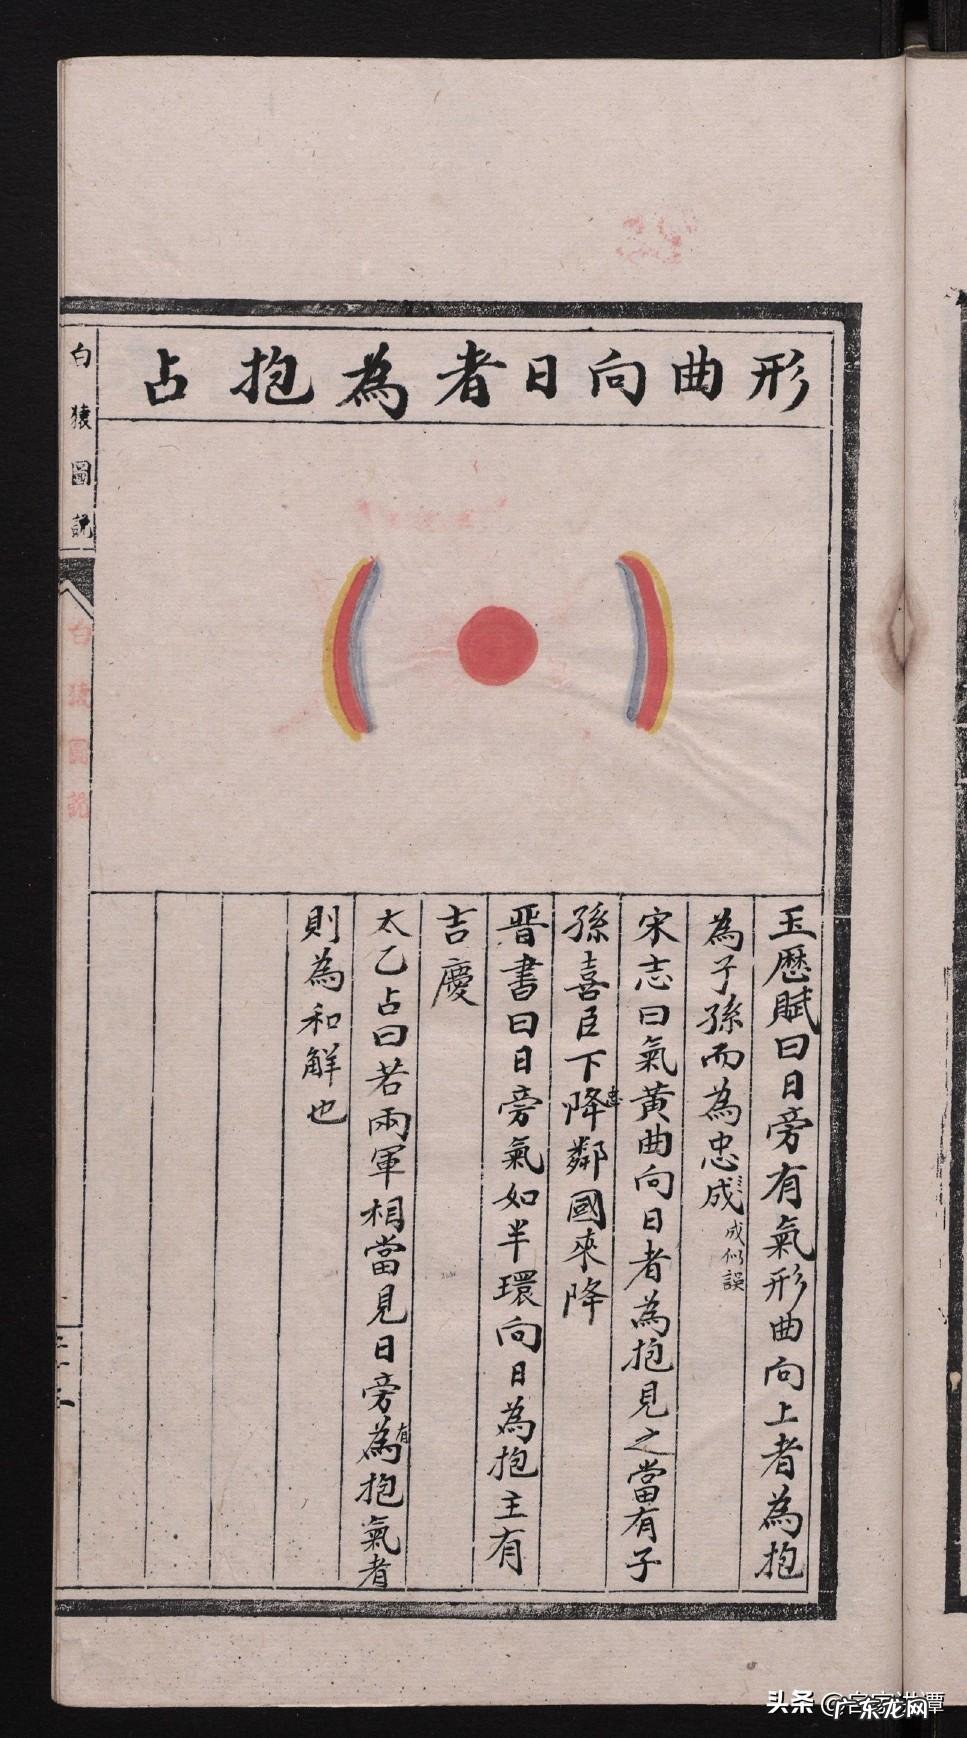 形曲向日者為抱占
玉歷賦曰日旁有氣形曲向上者為抱
為子孫而為忠成
成似誤
宋志曰氣黃曲向日者為抱見之當有子
孫喜臣下降鄰國來降
晋書曰日旁氣如半環向日為抱主有
吉慶
太乙占曰若兩軍相當見日旁為抱氣者
有
則為和解也
白猿圖說
白猿圖說
头条
广东龙网